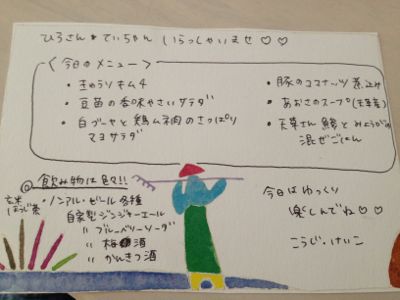 ひろさん★てぃちゃん いらっしゃいませ♡♡
＜今日のメニュー＞
・きゅうりキムチ
・豆苗の香味やさいサラダ
・白ゴーヤと鶏ムネ肉のさっぱり
マヨサラダ
・豚のココナッツ煮込み
・あおさのスープ(天草産)
・天草さん鯵とみょうがの
混ぜごはん
@飲み物は色々!!
玄米
ほうじ茶
・ノンアル・ビール各種
自家製ジンジャーエール
〃 ブルーベリーソーダ
〃 梅酒
〃 かんきつ酒
今日はゆっくり
楽しんでね♡♡
こうじ・けいこ